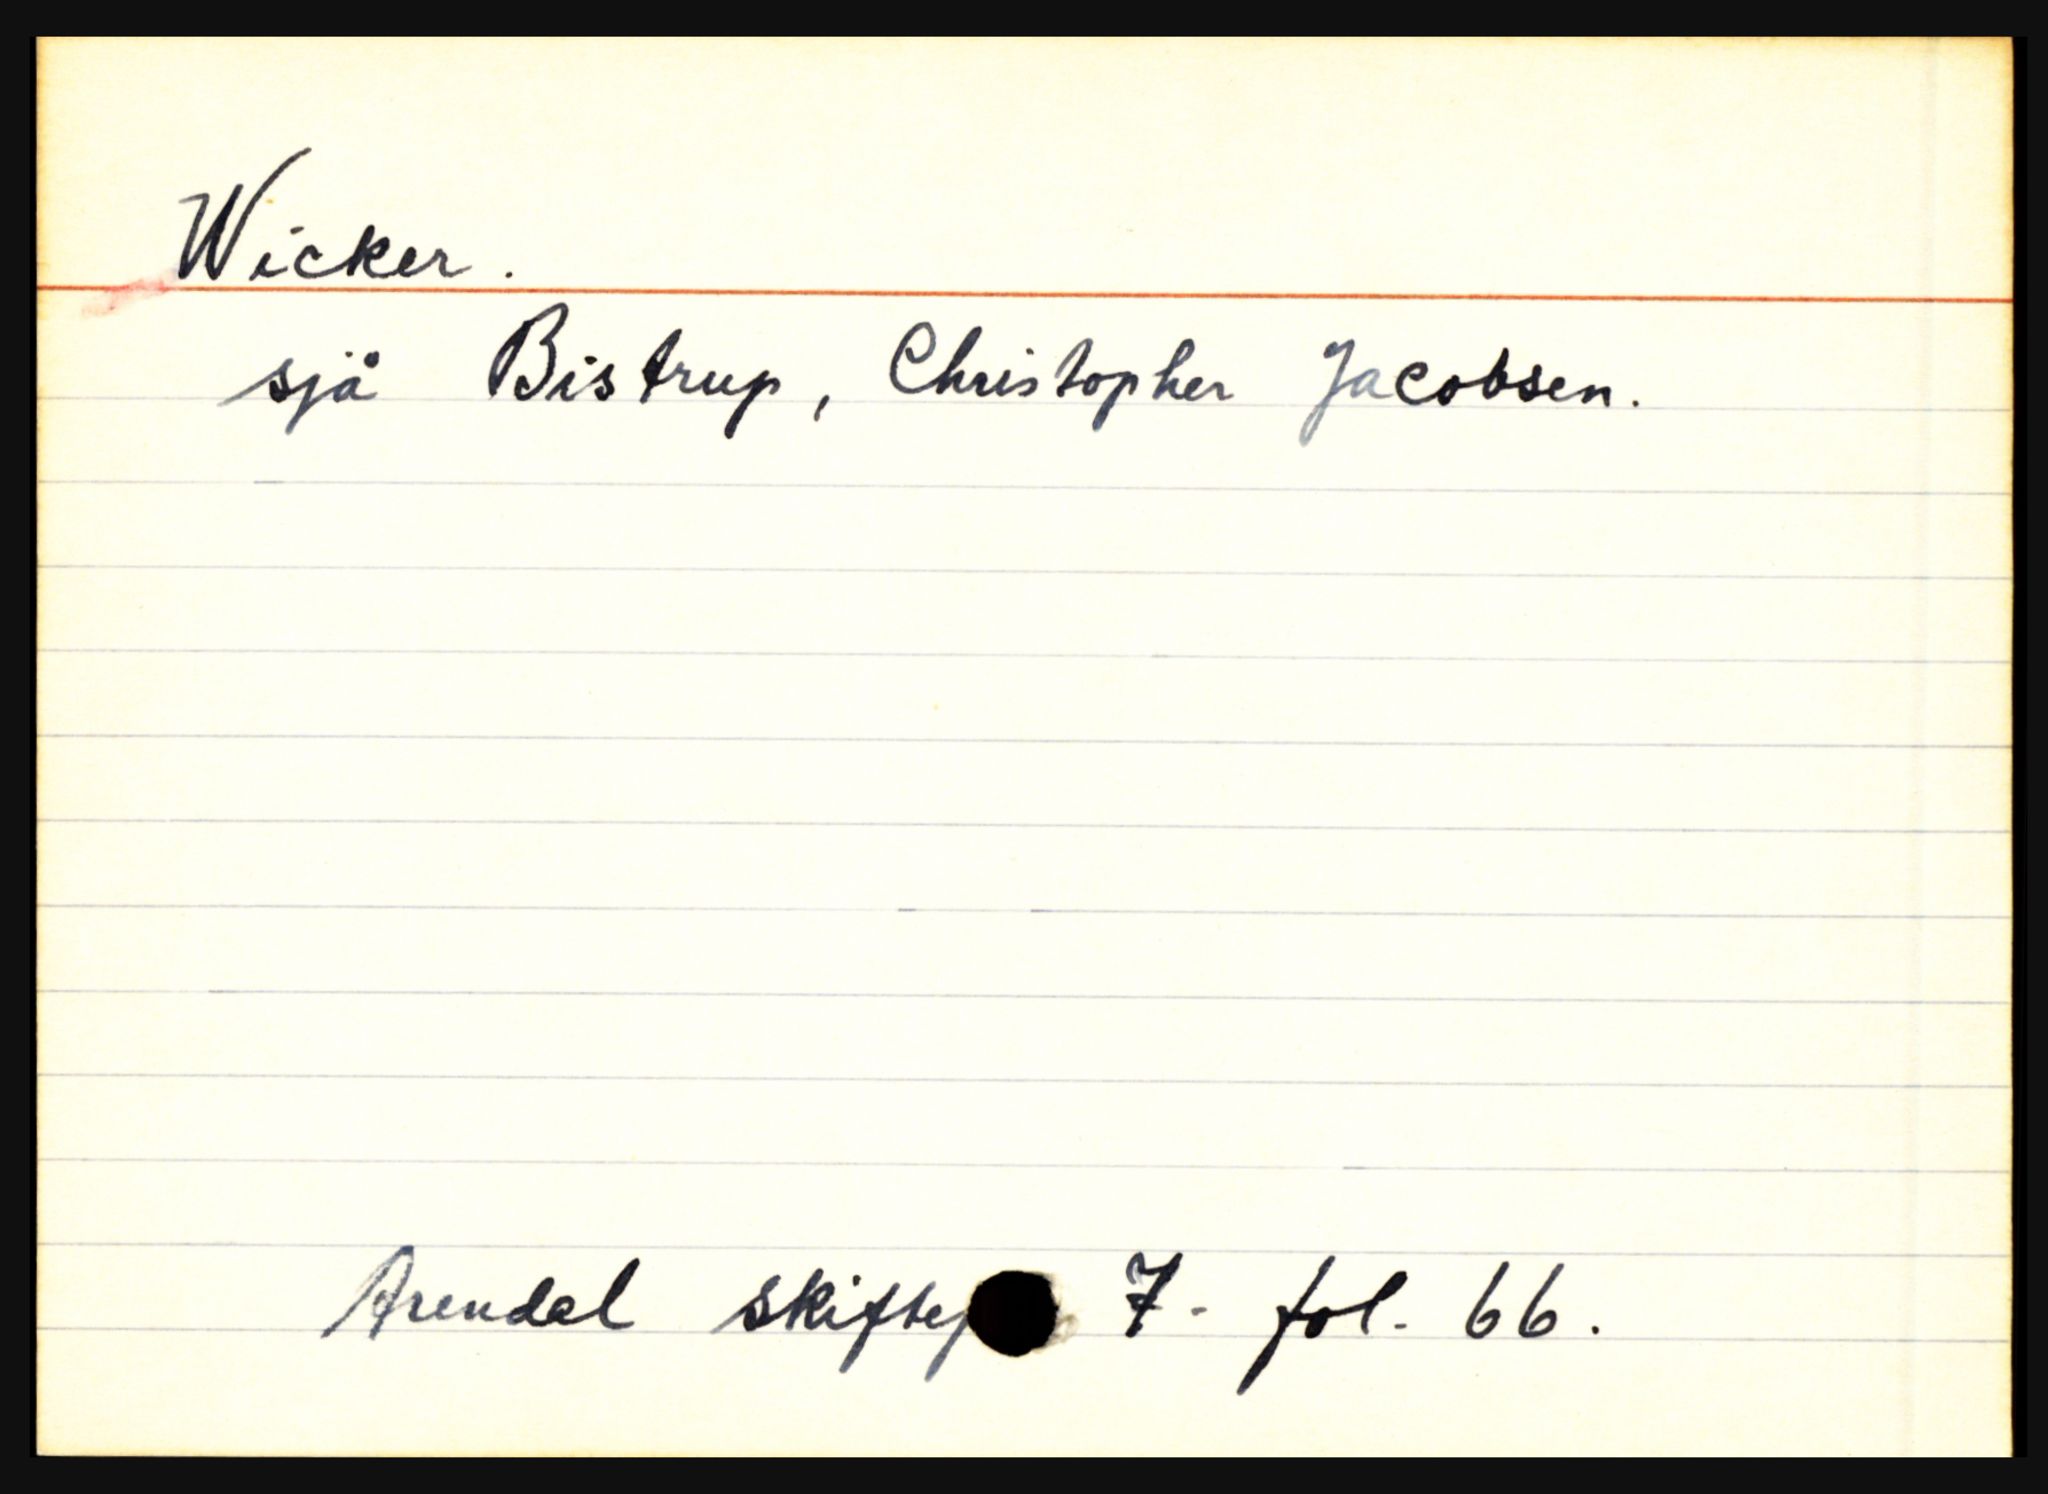 Wicker.
sjå Bistrup, Christopher Jacobsen.
Arendal 7. fol. 66.